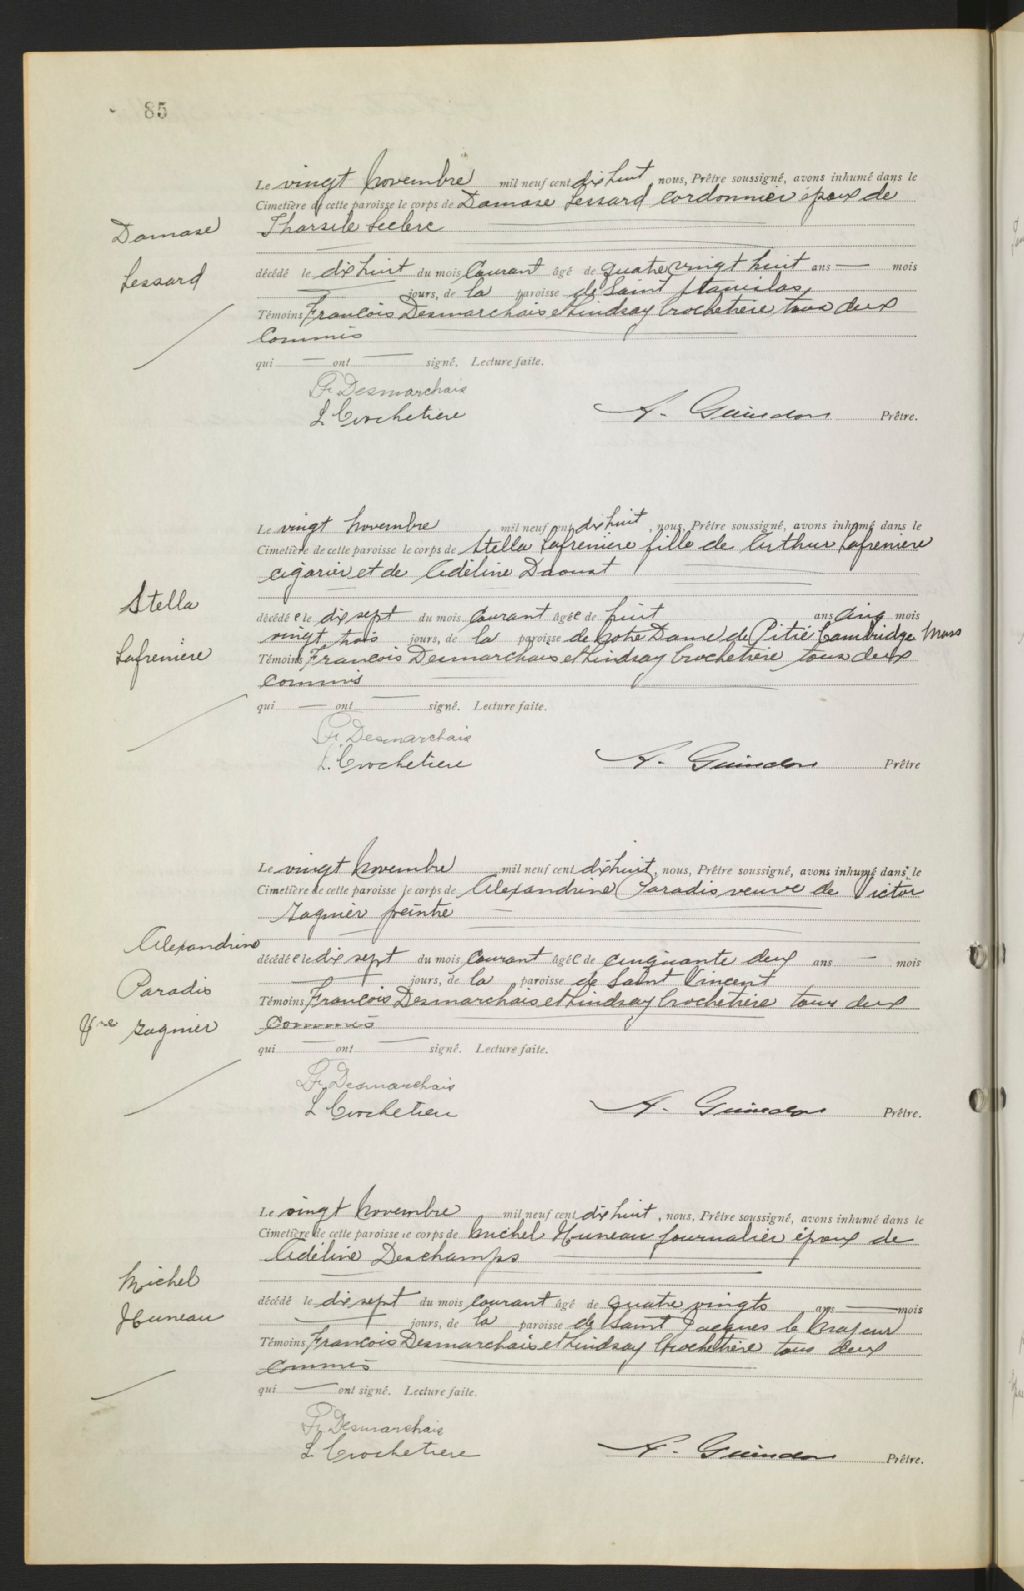 85
Le vingt novembre mil neuf cent dix huit, nous, Prêtre soussigné, avons inhumé dans le
Cimetière de cette paroisse le corps de Damase Lessard cordonnier époux de
Tharsile Leclerc
Damase
Lessard
décédé le dix huit du mois courant âgé de quatre vingt huit ans — mois
jours, de la paroisse de Saint Stanislas,
Témoins François Desmarchais et Lindsay Crochetière tous deux
commis
qui — ont — signé. Lecture faite.
Fr Desmarchais
L Crochetiere
A. Guindon Prêtre.
Le vingt novembre mil neuf cent dix huit, nous, Prêtre soussigné, avons inhumé dans le
Cimetière de cette paroisse le corps de Stella Lafrenière fille de Arthur Lafrenière
cigarier et de Adéline Daoust
Stella
Lafrenière
décédée le dix sept du mois courant âgée de huit ans cinq mois
vingt trois jours, de la paroisse de Notre Dame de Pitié Cambridge Mass
Témoins François Desmarchais et Lindsay Crochetière tous deux
commis
qui — ont — signé. Lecture faite.
Fr Desmarchais
L. Crochetiere
A. Guindon Prêtre
Le vingt novembre mil neuf cent dix huit, nous, Prêtre soussigné, avons inhumé dans le
Cimetière de cette paroisse le corps de Alexandrine Paradis veuve de Victor
Zagnier peintre
Alexandrine
Paradis
Vve Zagnier
décédée le dix sept du mois courant âgée de cinquante deux ans — mois
jours, de la paroisse de Saint Vincent
Témoins François Desmarchais et Lindsay Crochetière tous deux
commis
qui — ont — signé. Lecture faite.
Fr Desmarchais
L Crochetiere
A. Guindon Prêtre.
Le vingt novembre mil neuf cent dix huit, nous, Prêtre soussigné, avons inhumé dans le
Cimetière de cette paroisse le corps de Michel Huneau journalier époux de
Adéline Deschamps
Michel
Huneau
décédé le dix sept du mois courant âgé de quatre vingts ans — mois
jours, de la paroisse de Saint Jacques le Majeur
Témoins François Desmarchais et Lindsay Crochetière tous deux
commis
qui — ont signé. Lecture faite.
Fr Desmarchais
L Crochetiere
A. Guindon Prêtre.